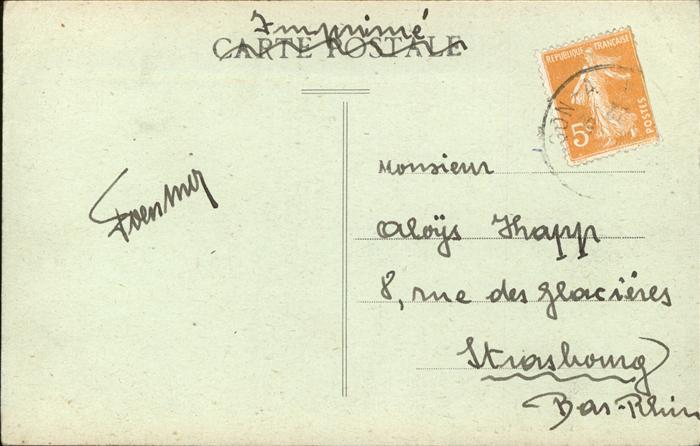 Imprimé
CARTE POSTALE
REPUBLIQUE FRANÇAISE
POSTES
5c
Monsieur
Aloÿs Khapp
8, rue des Glacières
Strasbourg
Bas-Rhin